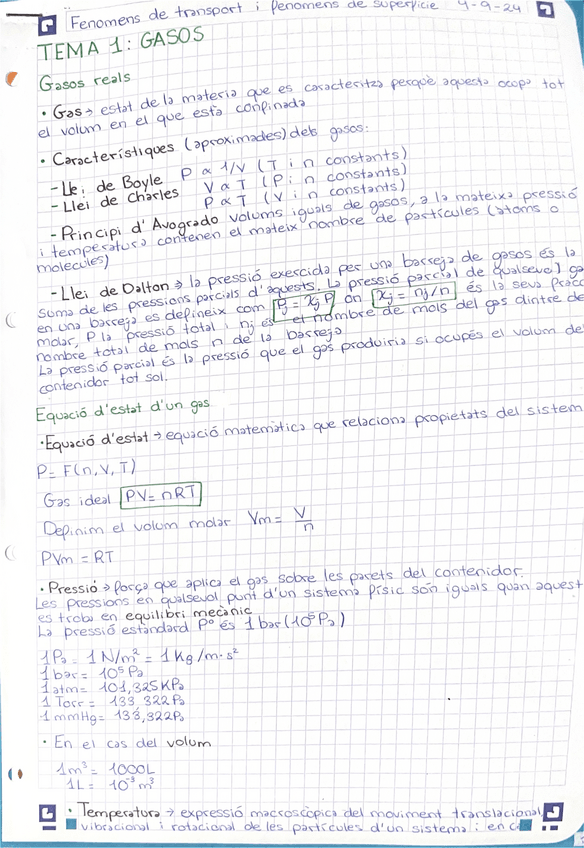 Fenomens de transport i fenomens de superfície 4-9-24
TEMA 1: GASOS
Gasos reals
· Gas → estat de la materia que es caracteritza perquè aquesta ocupa tot
el volum en el que està confinada
· Característiques (aproximades) dels gasos:
- Llei de Boyle P ∝ 1/V (T i n constants)
- Llei de Charles V ∝ T (P i n constants)
P ∝ T (V i n constants)
- Principi d'Avogrado volums iguals de gasos, a la mateixa pressió
i temperatura contenen el mateix nombre de partícules (atoms o
molecules)
- Llei de Dalton → la pressió exercida per una barreja de gasos és la
suma de les pressions parcials d'aquests. La pressió parcial de qualsevol ga
en una barreja es defineix com Pj = Xj P on Xj = nj/n és la seva fracc
molar, P la pressió total i nj és el nombre de mols del gas dintre del
nombre total de mols n de la barreja
La pressió parcial és la pressió que el gas produiria si ocupés el volum del
contenidor tot sol.
Equació d'estat d'un gas
· Equació d'estat → equació matemàtica que relaciona propietats del sistem
P = F(n, V, T)
Gas ideal PV = nRT
Definim el volum molar Vm = V/n
PVm = RT
· Pressió → força que aplica el gas sobre les parets del contenidor.
Les pressions en qualsevol punt d'un sistema físic són iguals quan aquest
es troba en equilibri mecànic
La pressió estàndard P° és 1 bar (10⁵Pa)
1Pa = 1 N/m² = 1 Kg/m·s²
1 bar = 10⁵ Pa
1 atm = 101,325 KPa
1 Torr = 133,322Pa
1 mmHg = 133,322Pa
· En el cas del volum
1m³ = 1000L
1L = 10⁻³ m³
· Temperatura → expressió macroscòpica del moviment translacional,
vibracional i rotacional de les partícules d'un sistema i en ca